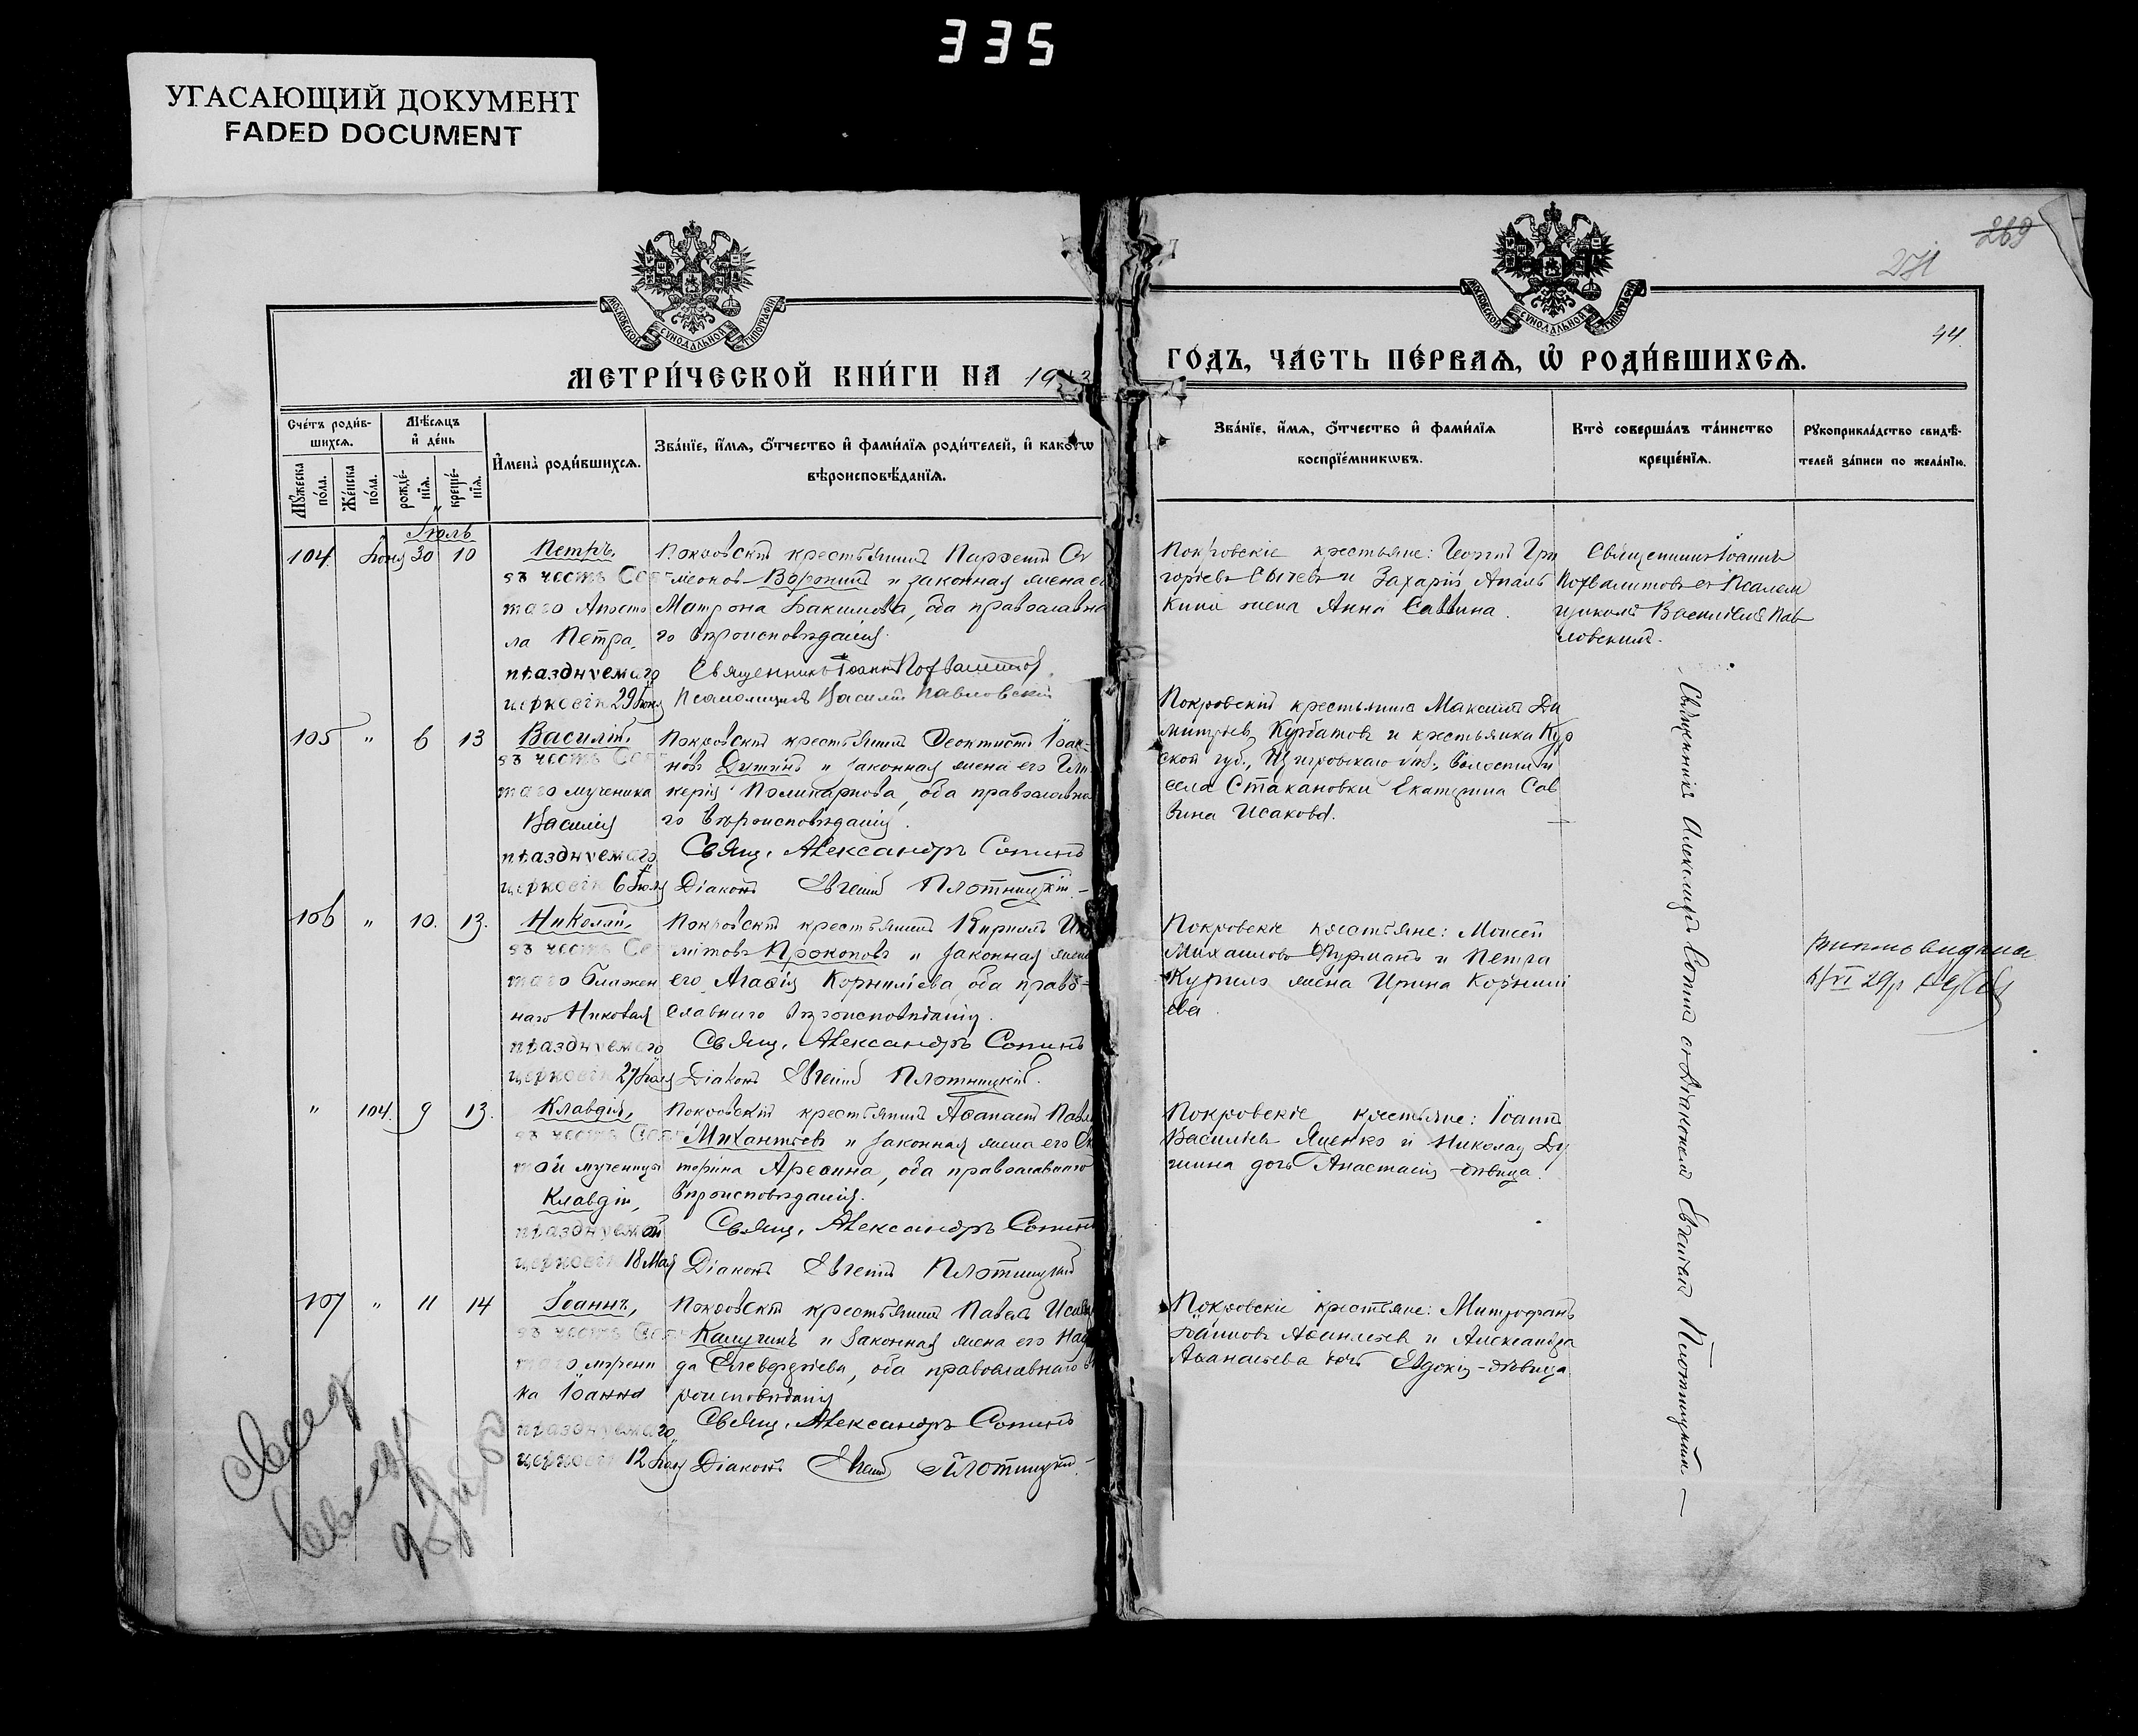 335
УГАСАЮЩИЙ ДОКУМЕНТ
FADED DOCUMENT
269
271
44.
МОСКОВСКОЙ СѴНОДАЛЬНОЙ ТИПОГРАФІИ
МОСКОВСКОЙ СѴНОДАЛЬНОЙ ТИПОГРАФІИ
МЕТРИ́ЧЕСКОЙ КНИ́ГИ НА 19
ГОДЪ, ЧА́СТЬ ПЕ́РВАѦ, Ѡ҆ РОДИ́ВШИХСѦ.
Сче́тъ роди́в-
шихсѧ.
Мꙋ́жеска по́ла.
Же́нска по́ла.
Мѣ́сѧцъ
и҆ де́нь
рожде́-нїѧ.
креще́-нїѧ.
И҆мена̀ роди́вшихсѧ.
Зва́нїе, и҆́мѧ, ѻ҆́тчество и҆ фами́лїѧ роди́телей, и҆ како́гѡ
вѣроисповѣ́данїѧ.
Зва́нїе, и҆́мѧ, ѻ҆́тчество и҆ фами́лїѧ
воспрїе́мникѡвъ.
Кто̀ соверша́лъ та́инство
креще́нїѧ.
Рꙋкоприкла́дство свидѣ́-
телей за́писи по жела́нїю.
Іюль
104 Іюня 30 10
Петръ,
въ честь Свя
таго Апосто
ла Петра,
празднуемаго
церковію 29 Іюня
Покровскій крестьянинъ Парѳеній Си
меоновъ Воронинъ и законная жена ег
Матрона Бакимова, оба православна
го вѣроисповѣданія.
Священникъ Іоаннъ Похвалитовъ
Псаломщикъ Василій Павловскій
Покровскіе крестьяне: Георгій Гри
горьевъ Сычевъ и Захарія Апаль
кина жена Анна Саввина.
Священникъ Іоаннъ
Похвалитовъ съ Псалом
щикомъ Василіемъ Пав
ловскимъ.
105 " 6 13
Василій,
въ честь Свя
таго мученика
Василія
празднуемаго
церковію 6 Іюля
Покровскій крестьянинъ Ѳеоктистъ Іоан-
новъ Дутинъ и законная жена его Гли
керія Поликарпова, оба православна
го вѣроисповѣданія.
Свящ. Александръ Сопинъ
Діаконъ Евгеній Плотницкій
Покровскій крестьянинъ Максимъ Ди
митріевъ Курбатовъ и крестьянка Кур
ской губ., Щигровскаго уѣз., волости и
села Стакановки Екатерина Сав
вина Исакова.
Священникъ Александръ Сопинъ съ Діакономъ Евгеніемъ Плотницкимъ
106 " 10. 13.
Николай,
въ честь Свя
таго блажен
наго Николая
празднуемаго
церковію 27 Іюля
Покровскій крестьянинъ Кириллъ
литовъ Прокоповъ и законная жена
его Агаѳія Корниліева, оба право-
славнаго вѣроисповѣданія.
Свящ. Александръ Сопинъ
Діаконъ Евгеній Плотницкій.
Покровскіе крестьяне: Моисей
Михаиловъ Фурманъ и Петра
Курило жена Ирина Корнилі
ева.
" 104. 9 13.
Клавдія,
въ честь Свя
той мученицы
Клавдіи,
празднуемой
церковію 18 Мая
Покровскій крестьянинъ Аѳанасій Павл
Михантьевъ и законная жена его Ека
терина Ареѳина, оба православнаго
вѣроисповѣданія.
Свящ. Александръ Сопинъ
Діаконъ Евгеній Плотницкій
Покровскіе крестьяне: Іоаннъ
Васильевъ Яценко и Николая Ду
шина дочь Анастасія дѣвица.
107 " 11 14
Іоаннъ,
въ честь Свя
таго мучени
ка Іоанна
празднуемаго
церковію 12 Іюля
Покровскій крестьянинъ Павелъ
Калугинъ и законная жена его
да Елевферіева, оба православнаго вѣ
роисповѣданія
Свящ. Александръ Сопинъ
Діаконъ Евгеній Плотницкій.
Покровскіе крестьяне: Митрофанъ
Іоанновъ и Александра
Аѳанасьева дочь Евдокія-дѣвица